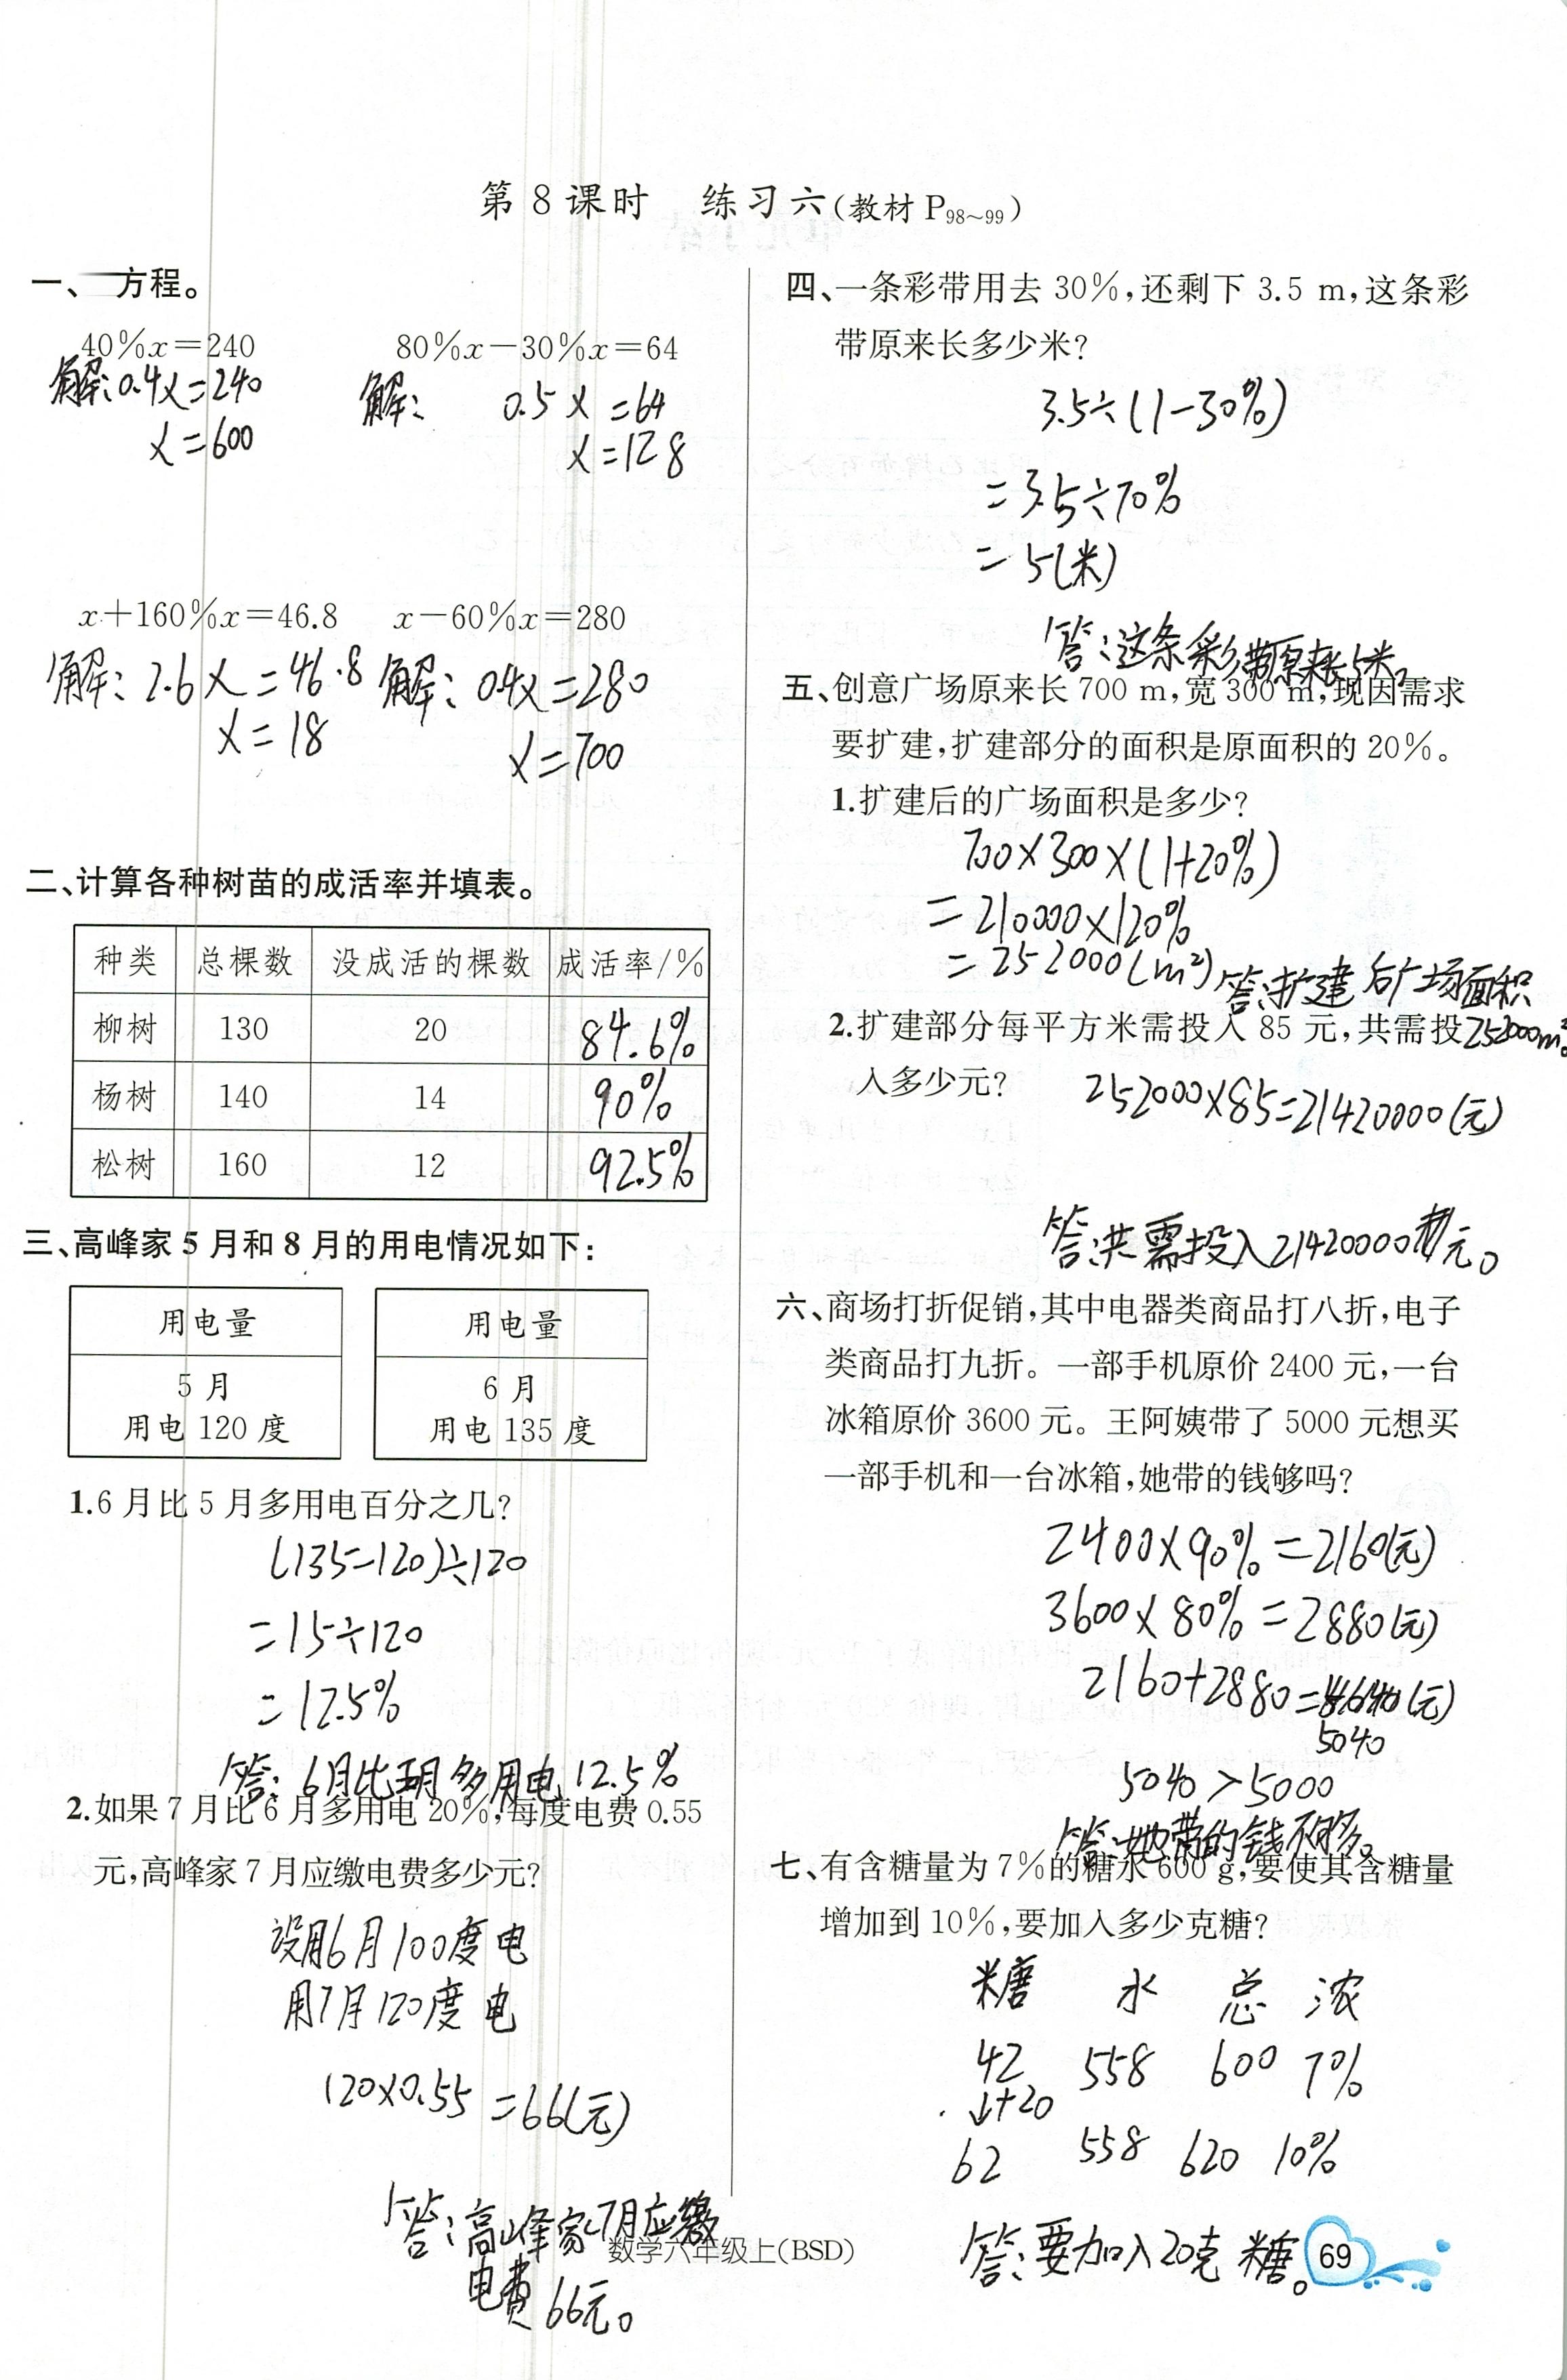 第8课时 练习六(教材P98~99)
一、 方程。
40%x=240 80%x-30%x=64
解:0.4x=240 解: 0.5x=64
x=600 x=128
x+160%x=46.8 x-60%x=280
解:2.6x=46.8 解:0.4x=280
x=18 x=700
二、计算各种树苗的成活率并填表。
种类 总棵数 没成活的棵数 成活率/%
柳树 130 20 84.6%
杨树 140 14 90%
松树 160 12 92.5%
三、高峰家5月和8月的用电情况如下:
用电量 用电量
5月 6月
用电120度 用电135度
1.6月比5月多用电百分之几?
(135-120)÷120
=15÷120
=12.5%
答:6月比5月多用电12.5%
2.如果7月比6月多用电20%,每度电费0.55
元,高峰家7月应缴电费多少元?
设用6月100度电
用7月120度电
120×0.55=66(元)
答:高峰家7月应缴
电费66元。
四、一条彩带用去30%,还剩下3.5 m,这条彩
带原来长多少米?
3.5÷(1-30%)
=3.5÷70%
=5(米)
答:这条彩带原来长5米。
五、创意广场原来长700 m,宽300 m,现因需求
要扩建,扩建部分的面积是原面积的20%。
1.扩建后的广场面积是多少?
700×300×(1+20%)
=210000×120%
=252000(m²)
答:扩建后广场面积
252000m²。
2.扩建部分每平方米需投入85元,共需投
入多少元?
252000×85=21420000(元)
答:共需投入21420000元。
六、商场打折促销,其中电器类商品打八折,电子
类商品打九折。一部手机原价2400元,一台
冰箱原价3600元。王阿姨带了5000元想买
一部手机和一台冰箱,她带的钱够吗?
2400×90%=2160(元)
3600×80%=2880(元)
2160+2880=(元)
5040
5040>5000
答:她带的钱不够。
七、有含糖量为7%的糖水600 g,要使其含糖量
增加到10%,要加入多少克糖?
糖 水 总 浓
42 558 600 7%
↓+20
62 558 620 10%
答:要加入20克糖。
数学六年级上(BSD)
69